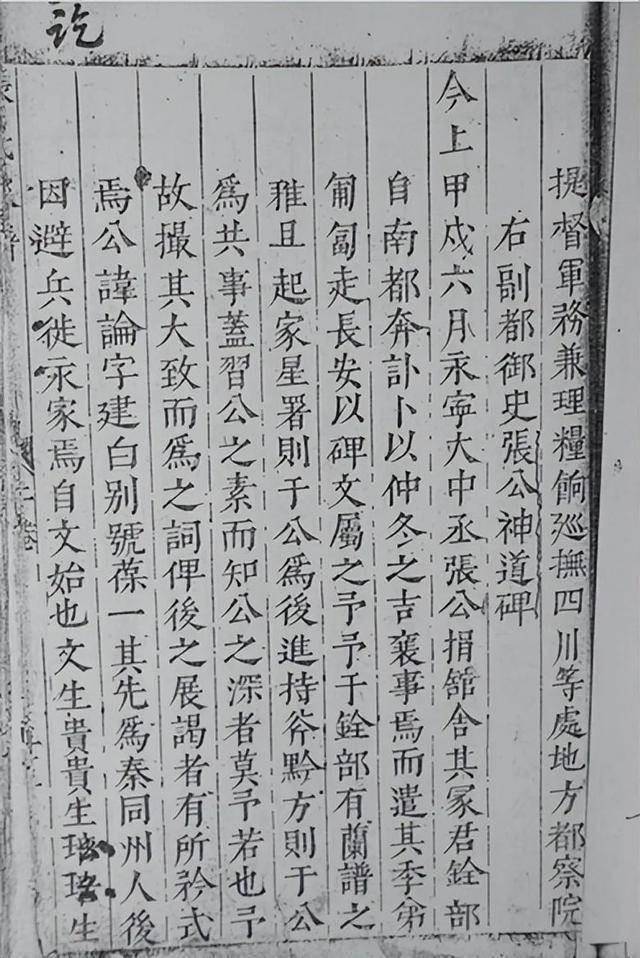 訖
提督軍務兼理糧餉廵撫四川等處地方都察院
右副都御史張公神道碑
今上甲戍六月永寕大中丞張公捐舘舎其冢君銓部
自南都奔訃卜以仲冬之吉襄事焉而遣其季弟
匍匐走長安以碑文屬之予予于銓部有蘭譜之
雅且起家星署則于公爲後進持斧黔方則于公
爲共事蓋習公之素而知公之深者莫予若也予
故撮其大致而爲之詞俾後之展謁者有所矜式
焉公諱論字建白别號葆一其先爲秦同州人後
因避兵徙永家焉自文始也文生貴貴生
生